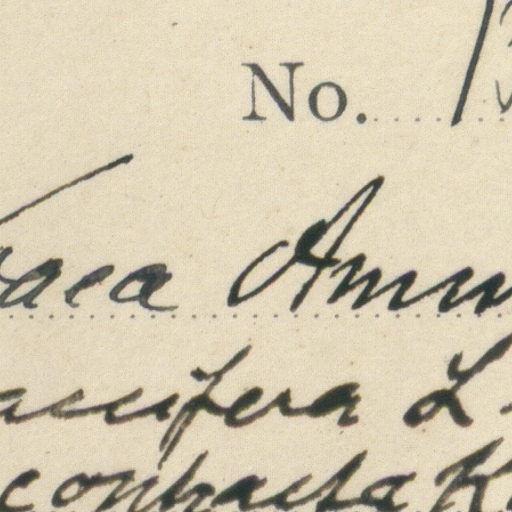 No.
aea Amm
accifera L
contracta K